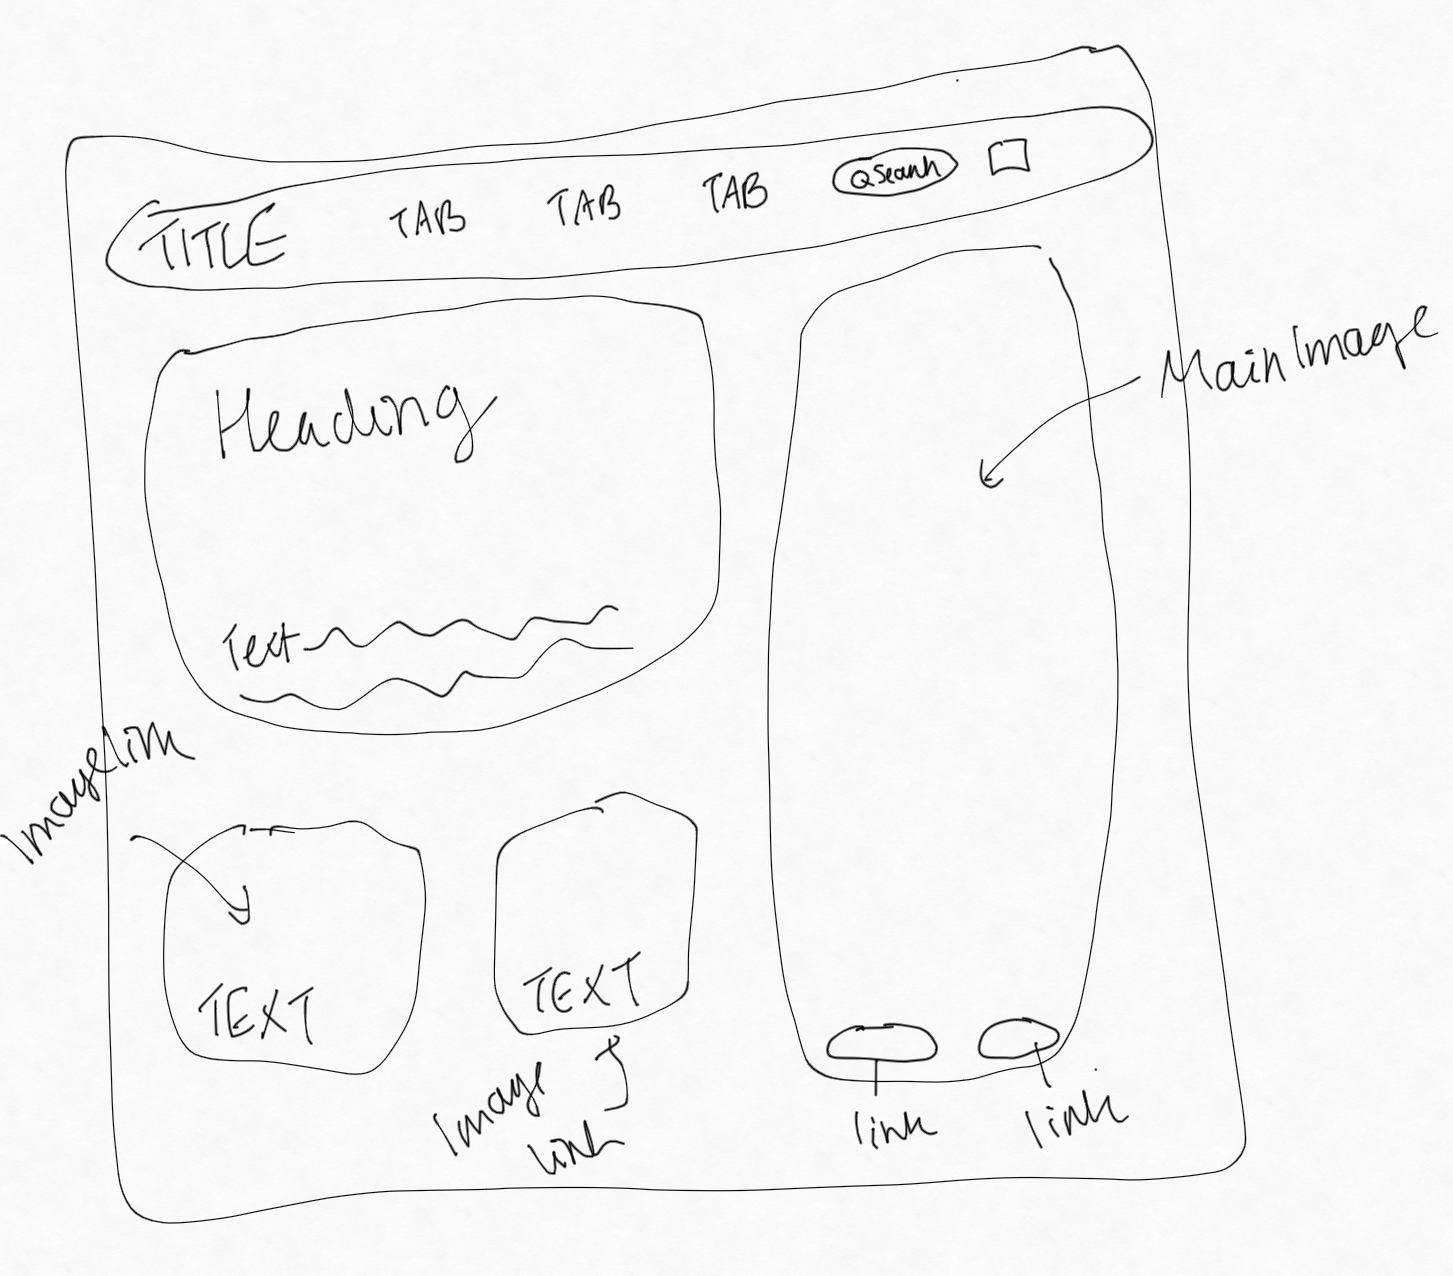 TITLE TAB TAB TAB Search
Heading
Main Image
Text
Image link
TEXT
TEXT
Image
link
link
link